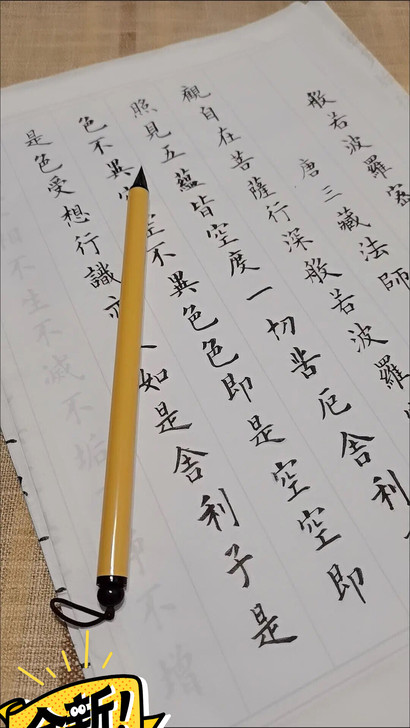 般若波羅
唐三藏法師
觀自在菩薩行深般若波羅
照見五蘊皆空度一切苦厄舍利
色不異空不異色色即是空空即
是色受想行識亦如是舍利子是
相不生不滅不垢不增
全新!